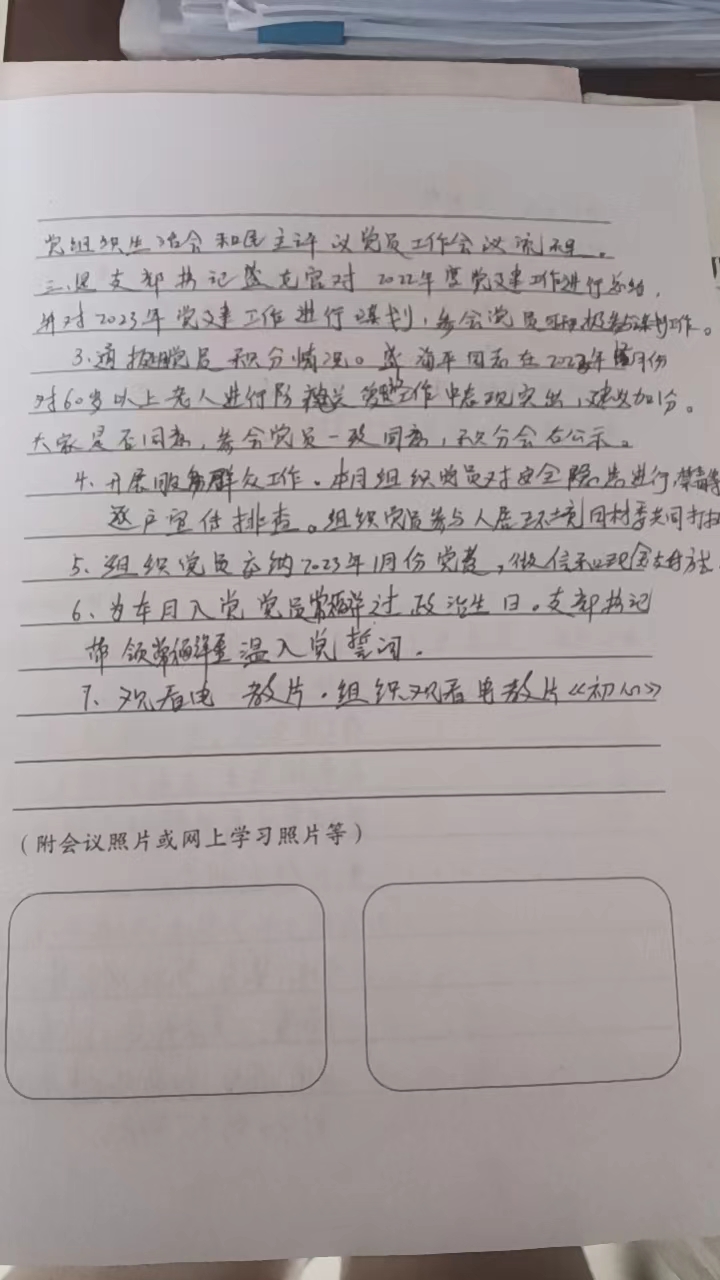 党组织生活会和民主评议党员工作会议流程。
三、是支部书记盛龙官对2022年度党建工作进行总结,
并对2023年党建工作进行谋划,参会党员积极参与谋划工作。
3、通报党员积分情况。盛海平同志在2023年1月份
对60岁以上老人进行防工作中表现突出,建议加分。
大家是否同意,参会党员一致同意,积分会后公示。
4、开展服务群众工作。本月组织党员对安全隐患进行,禁毒等
逐户宣传排查。组织党员参与人居环境同村委共同打扫
5、组织党员交纳2023年1月份党费,微信和现金支付
6、为本月入党党员过政治生日。支部书记
带领重温入党誓词。
7、观看电教片。组织观看电教片《初心》
(附会议照片或网上学习照片等)